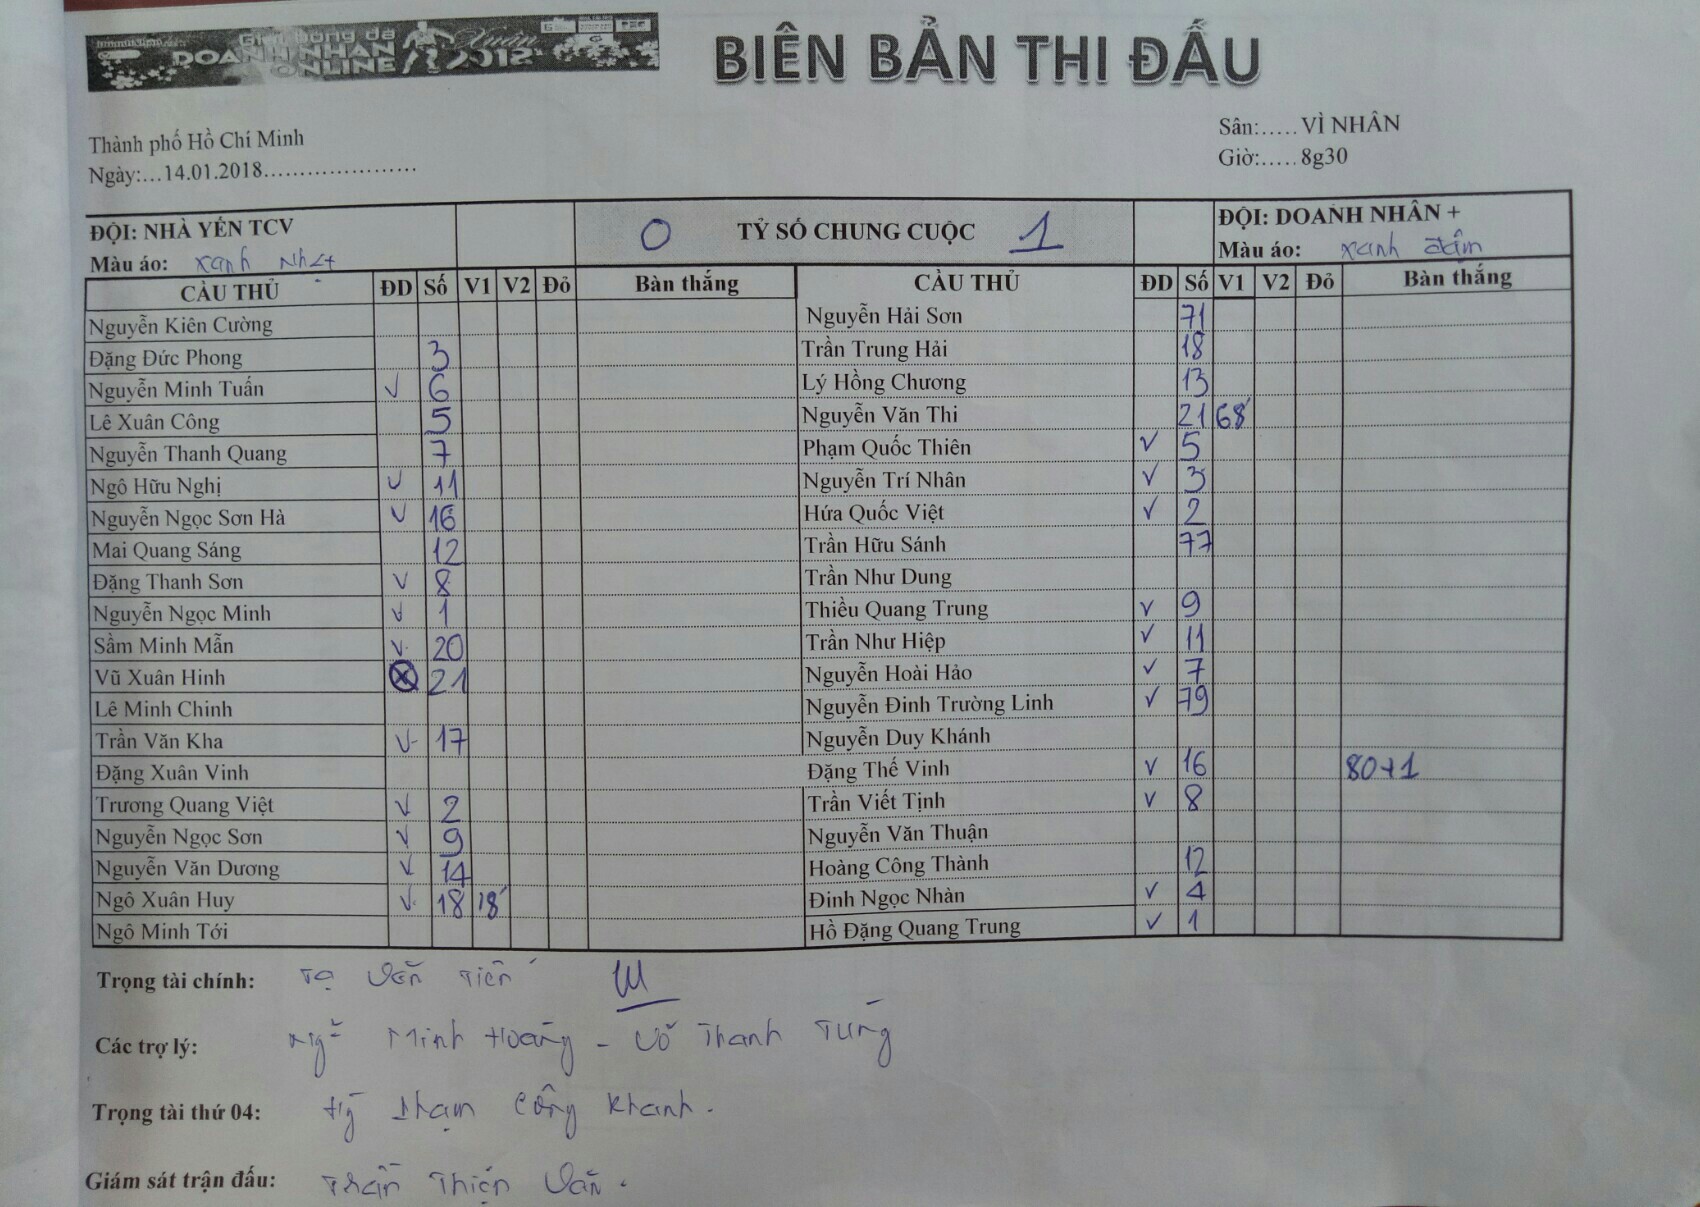 Giải bóng đá
DOANH NHÂN
ONLINE
Xuân
2018
BIÊN BẢN THI ĐẤU
Thành phố Hồ Chí Minh
Ngày:...14.01.2018.....................
Sân:..... VÌ NHÂN
Giờ:..... 8g30
ĐỘI: NHÀ YẾN TCV 0 TỶ SỐ CHUNG CUỘC 1 ĐỘI: DOANH NHÂN +
Màu áo: xanh nhạt Màu áo: xanh đậm
CẦU THỦ ĐD Số V1 V2 Đỏ Bàn thắng CẦU THỦ ĐD Số V1 V2 Đỏ Bàn thắng
Nguyễn Kiên Cường Nguyễn Hải Sơn 71
Đặng Đức Phong 3 Trần Trung Hải 18
Nguyễn Minh Tuấn ✓ 6 Lý Hồng Chương 13
Lê Xuân Công 5 Nguyễn Văn Thi 21 68'
Nguyễn Thanh Quang 7 Phạm Quốc Thiên ✓ 5
Ngô Hữu Nghị ✓ 11 Nguyễn Trí Nhân ✓ 3
Nguyễn Ngọc Sơn Hà ✓ 16 Hứa Quốc Việt ✓ 2
Mai Quang Sáng 12 Trần Hữu Sánh 77
Đặng Thanh Sơn ✓ 8 Trần Như Dung
Nguyễn Ngọc Minh ✓ 1 Thiều Quang Trung ✓ 9
Sầm Minh Mẫn ✓ 20 Trần Như Hiệp ✓ 11
Vũ Xuân Hinh ⊗ 21 Nguyễn Hoài Hảo ✓ 7
Lê Minh Chinh Nguyễn Đinh Trường Linh ✓ 79
Trần Văn Kha ✓ 17 Nguyễn Duy Khánh
Đặng Xuân Vinh Đặng Thế Vinh ✓ 16 80+1
Trương Quang Việt ✓ 2 Trần Viết Tịnh ✓ 8
Nguyễn Ngọc Sơn ✓ 9 Nguyễn Văn Thuận
Nguyễn Văn Dương ✓ 14 Hoàng Công Thành 12
Ngô Xuân Huy ✓ 18 18' Đinh Ngọc Nhàn ✓ 4
Ngô Minh Tới Hồ Đặng Quang Trung ✓ 1
Trọng tài chính: Tạ Văn Tiến
Các trợ lý: Ngũ Minh Hoàng - Võ Thanh Tùng
Trọng tài thứ 04: Phạm Công Khanh.
Giám sát trận đấu: Trần Thiện Văn.